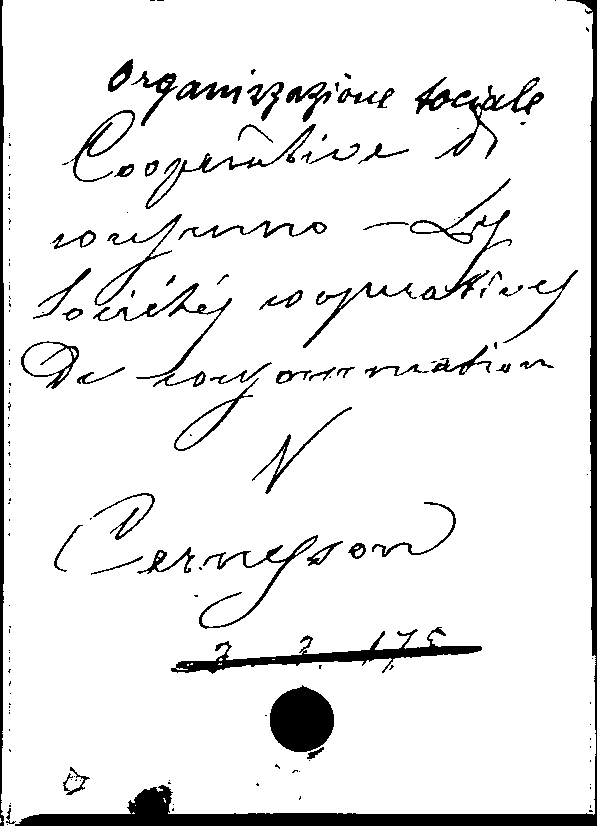 Organizzazione sociale
Cooperative di
consumo – Les
Sociétés coopératives
De consommation
V
Cernesson
3. 3. 175